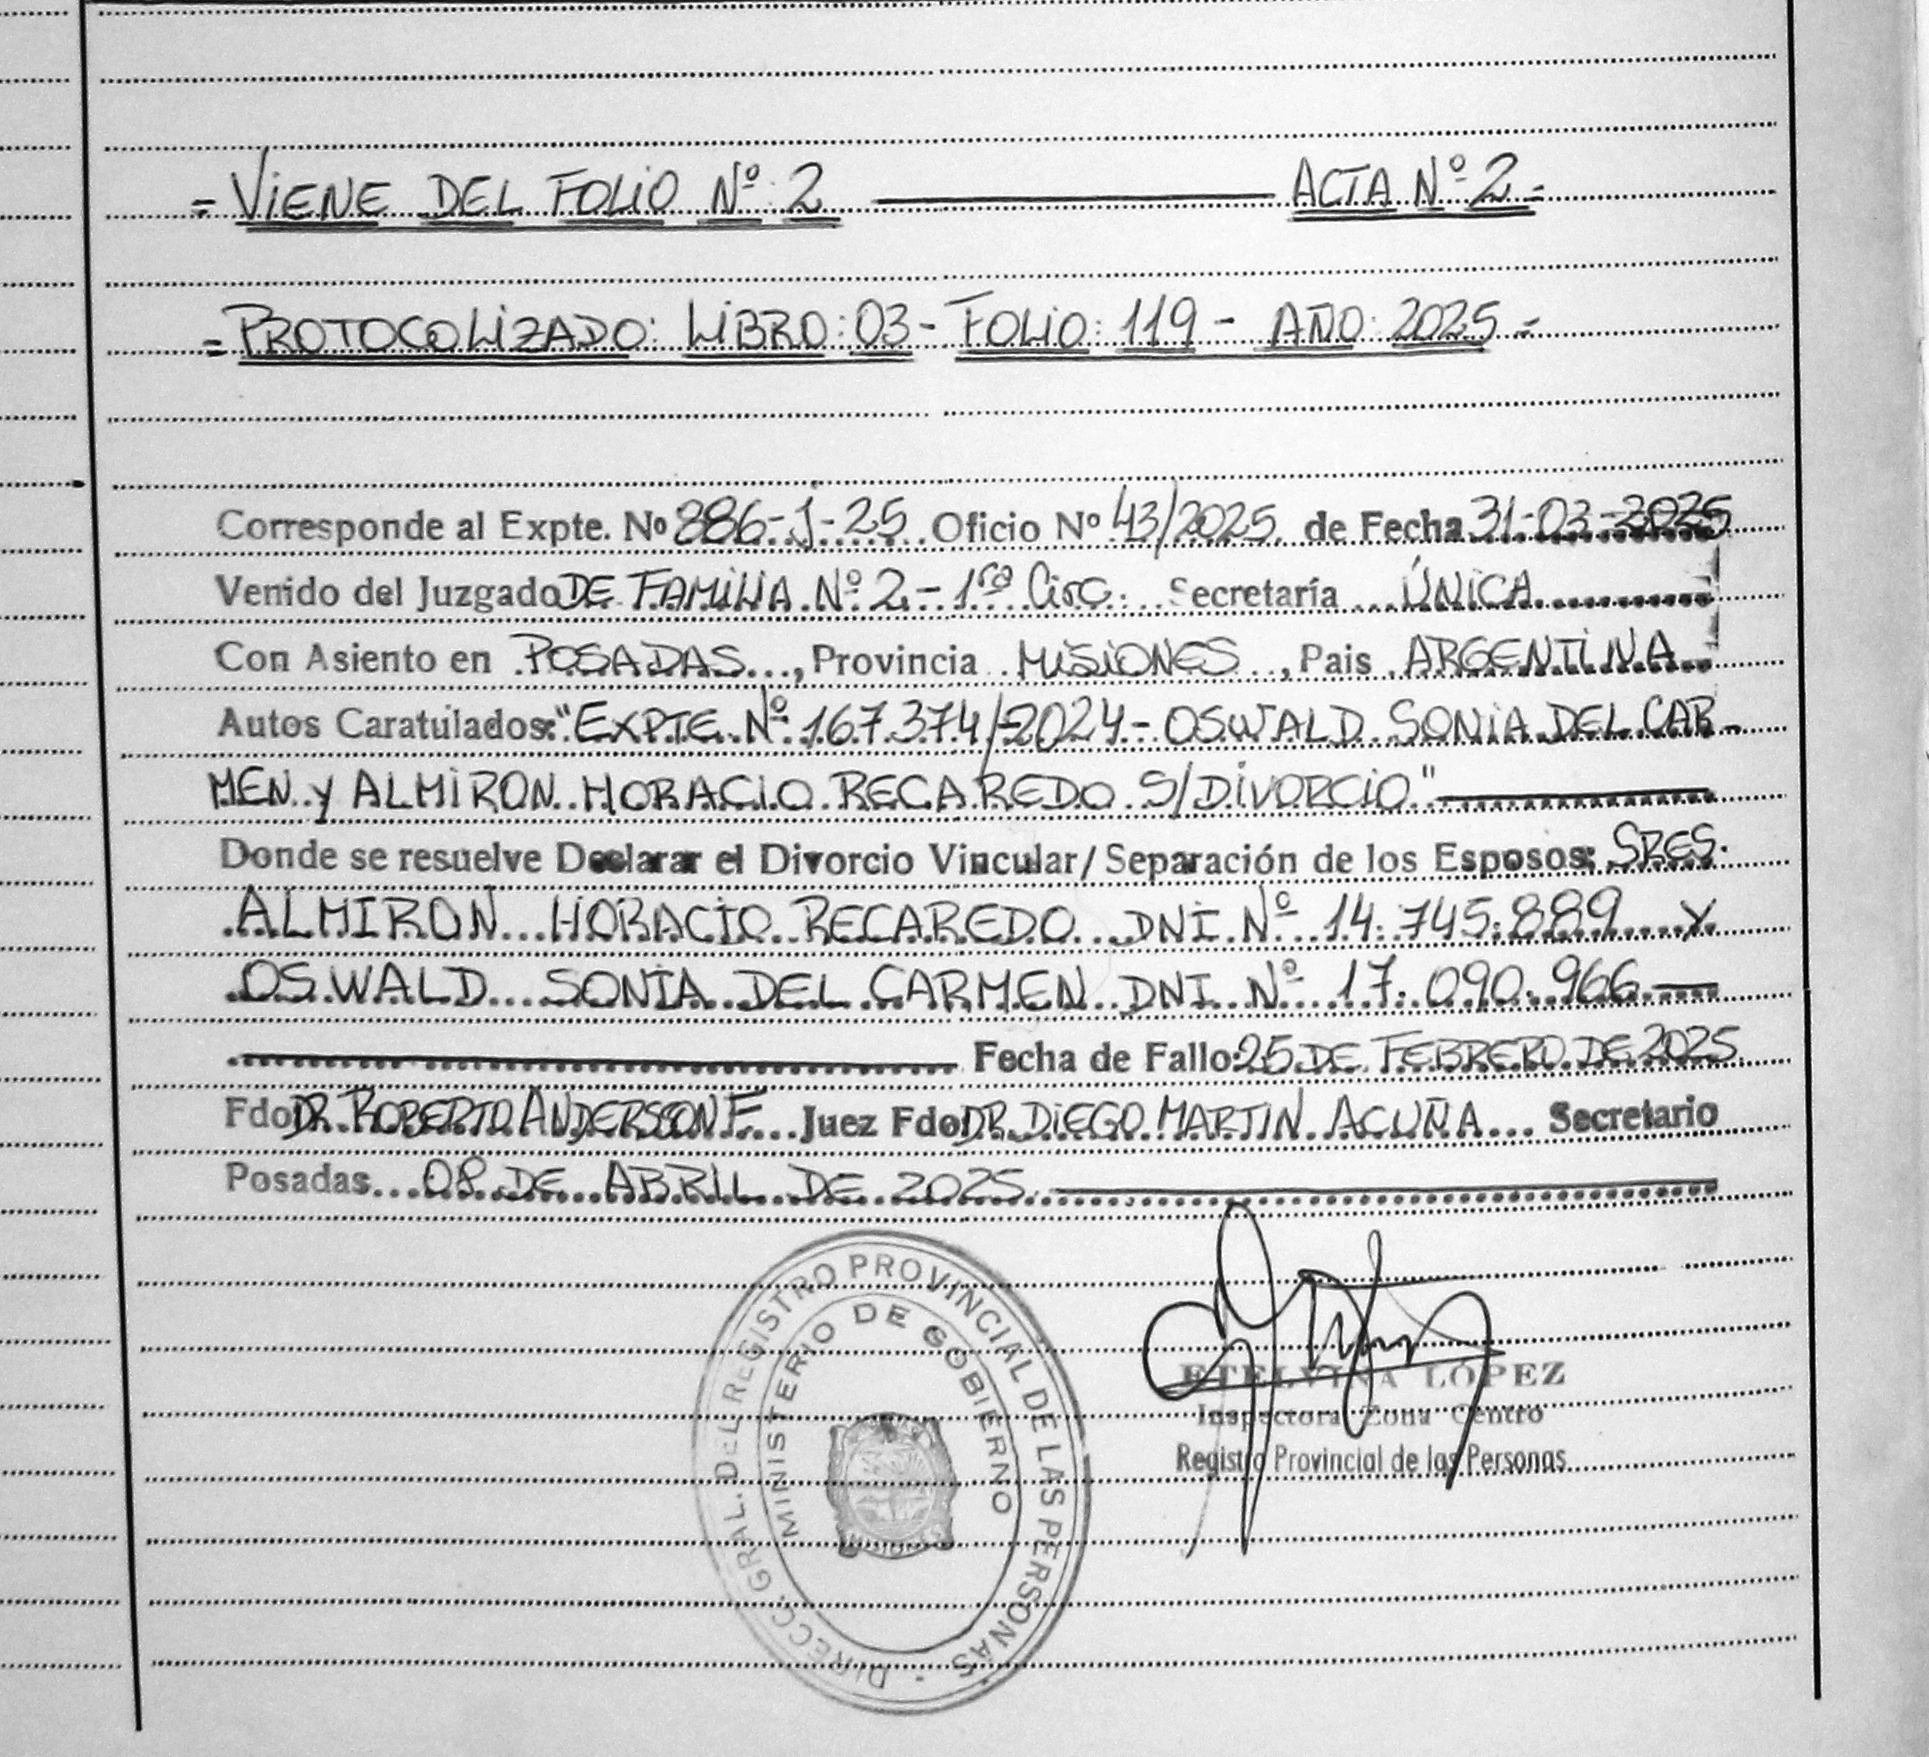 = VIENE DEL FOLIO Nº: 2 ———— ACTA Nº 2 =
= PROTOCOLIZADO: LIBRO: 03 - FOLIO: 119 - AÑO: 2025 =
Corresponde al Expte. Nº 886-J-25 Oficio Nº 43/2025 de Fecha 31-03-2025
Venido del Juzgado DE FAMILIA Nº 2 - 1ra Circ. Secretaría ÚNICA
Con Asiento en POSADAS, Provincia MISIONES, Pais ARGENTINA
Autos Caratulados: "EXPTE. Nº 167.374/2024 - OSWALD SONIA DEL CAR-
MEN y ALMIRON HORACIO RECAREDO S/DIVORCIO"
Donde se resuelve Declarar el Divorcio Vincular/Separación de los Esposos: SRES.
ALMIRON HORACIO RECAREDO DNI Nº 14.745.889 y
OSWALD SONIA DEL CARMEN DNI Nº 17.090.966
Fecha de Fallo: 25 DE FEBRERO DE 2025
Fdo DR. ROBERTO ANDERSSON F. Juez Fdo DR. DIEGO MARTIN ACUÑA Secretario
Posadas 08 DE ABRIL DE 2025
DIRECC. GRAL. DEL REGISTRO PROVINCIAL DE LAS PERSONAS
MINISTERIO DE GOBIERNO
MISIONES
ETELVINA LÓPEZ
Inspectora Zona Centro
Registro Provincial de las Personas